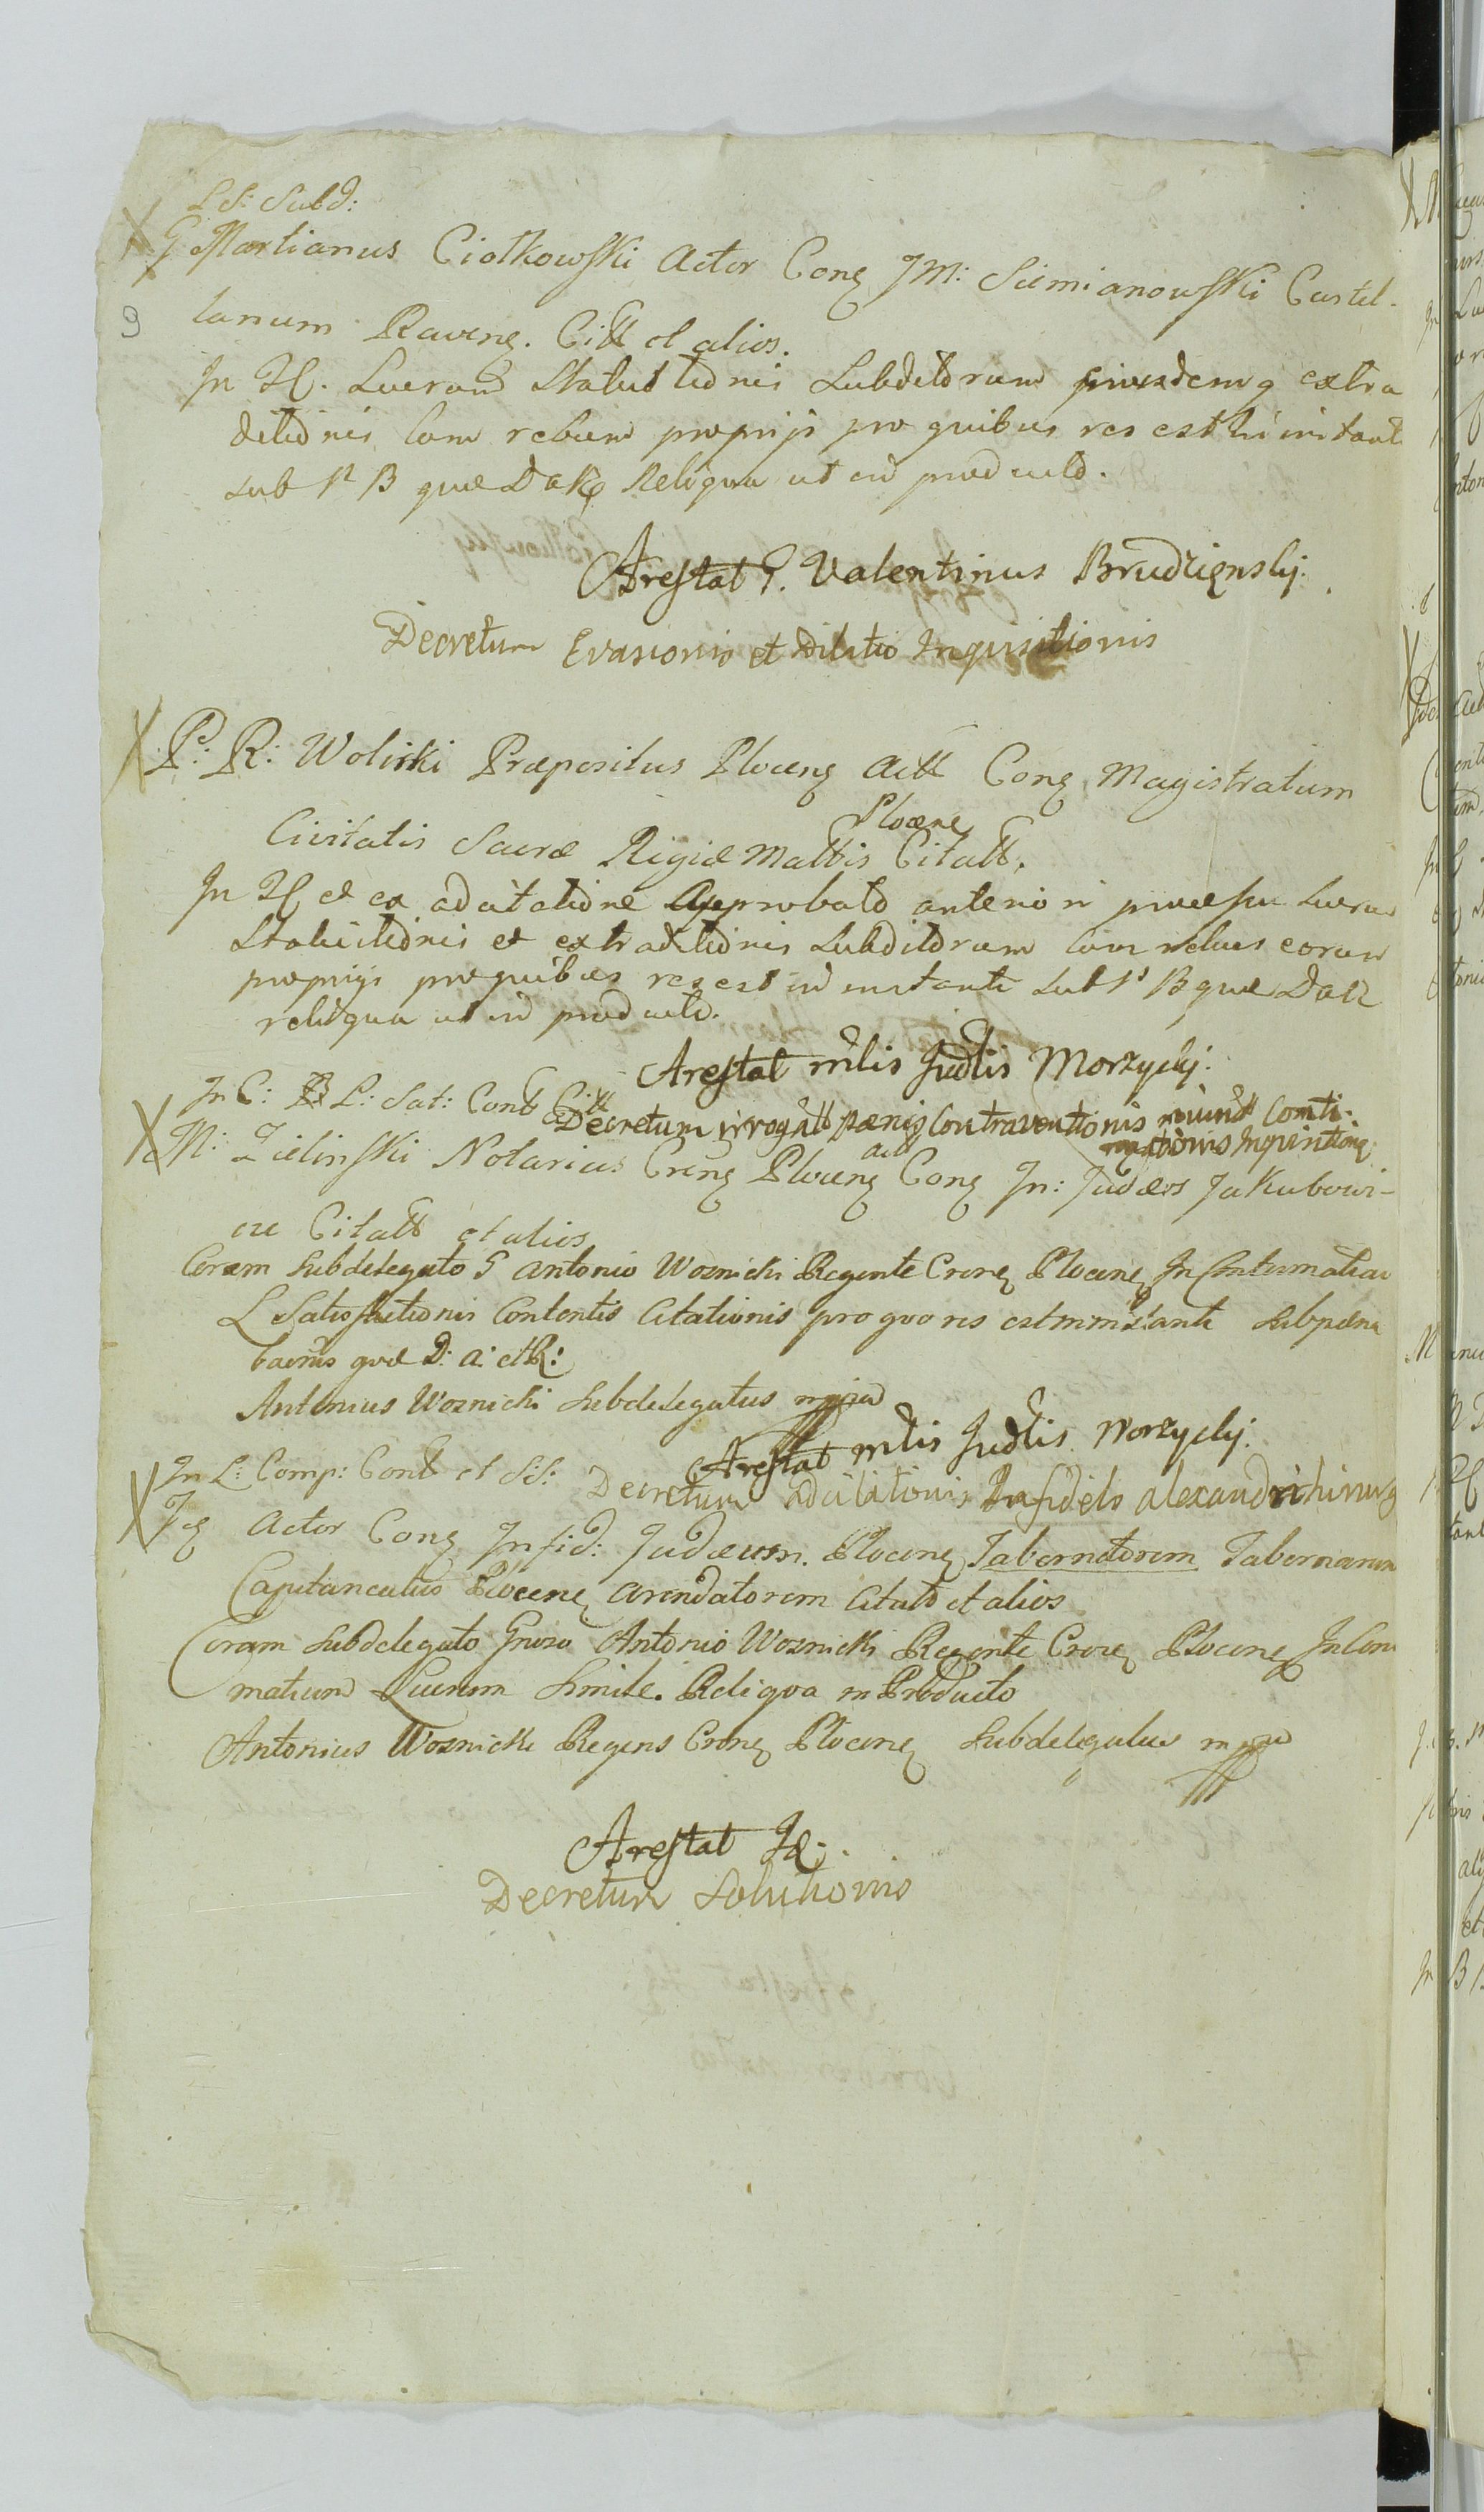 LS: Subd:
G Martianus Ciołkowski Actor Conq JM: Siemianowski Castel-
9
lanum Ravenq. Citt et alios.
In H. Lucrand Statui tidnis Subditdrum eiusdemq extra
ditidnis Cum rebus proprijs pro quibus res est in instanti
sub Pt B quæ DaRq Reliqua ut in productd.
Arestat G. Valentinus Brudzięnskj.
Decretum Evasionis et dilatio Inquisitionis
P: R: Woliski Præpositus Plocenq Actt Conq Magistratum
Plocenq
Civitatis Sacræ Regiæ Mattis Citatt.
In H et ex adcitatidne Approbatd anteriori processu Lucrand
Statuitidnis et extraditidnis Subditdrum cum rebus eorum
proprijs pro quibus res est in instanti sub Pt B quæ DaR
reliqua ut in productd.
Arestat mlis Judlis Morzyckj.
In C: L: Sat: Cont Citt
Decretum irrogatt pœnis Contraventionis
Inquisitionq
M: Zielinski Notarius Crenq Plocenq Conq In: Judæos Jakubowi-
actt
cze Citatt et alios
Coram Subdelegato G Antonio Woznicki Regente Crenq Plocenq In Contumatiam
L Satisfactionis Contentis Citationis pro quo res est in instanti sub pœna
banis quæ D: a: et R:
Antonius Woznicki Subdelegatus mppa
Arestat mlis Judlis Morzyckj.
In L: Comp: Cont et SS: Decretum adcitationis Infidelis alexandri
Jq Actor Conq Infid: Judæum. Plocenq Tabernatorem Tabernarum
Capitanealis Plocenq arendatorem Citatt et alios
Coram Subdelegato Gnroso Antonio Woznicki Regente Crenq Plocenq In Con
matiam Lucrum Simile. Reliqua in Producto
Antonius Woznicki Regens Crenq Plocenq Subdelegatus mppa
Arestat Jq.
Decretum Solutionis